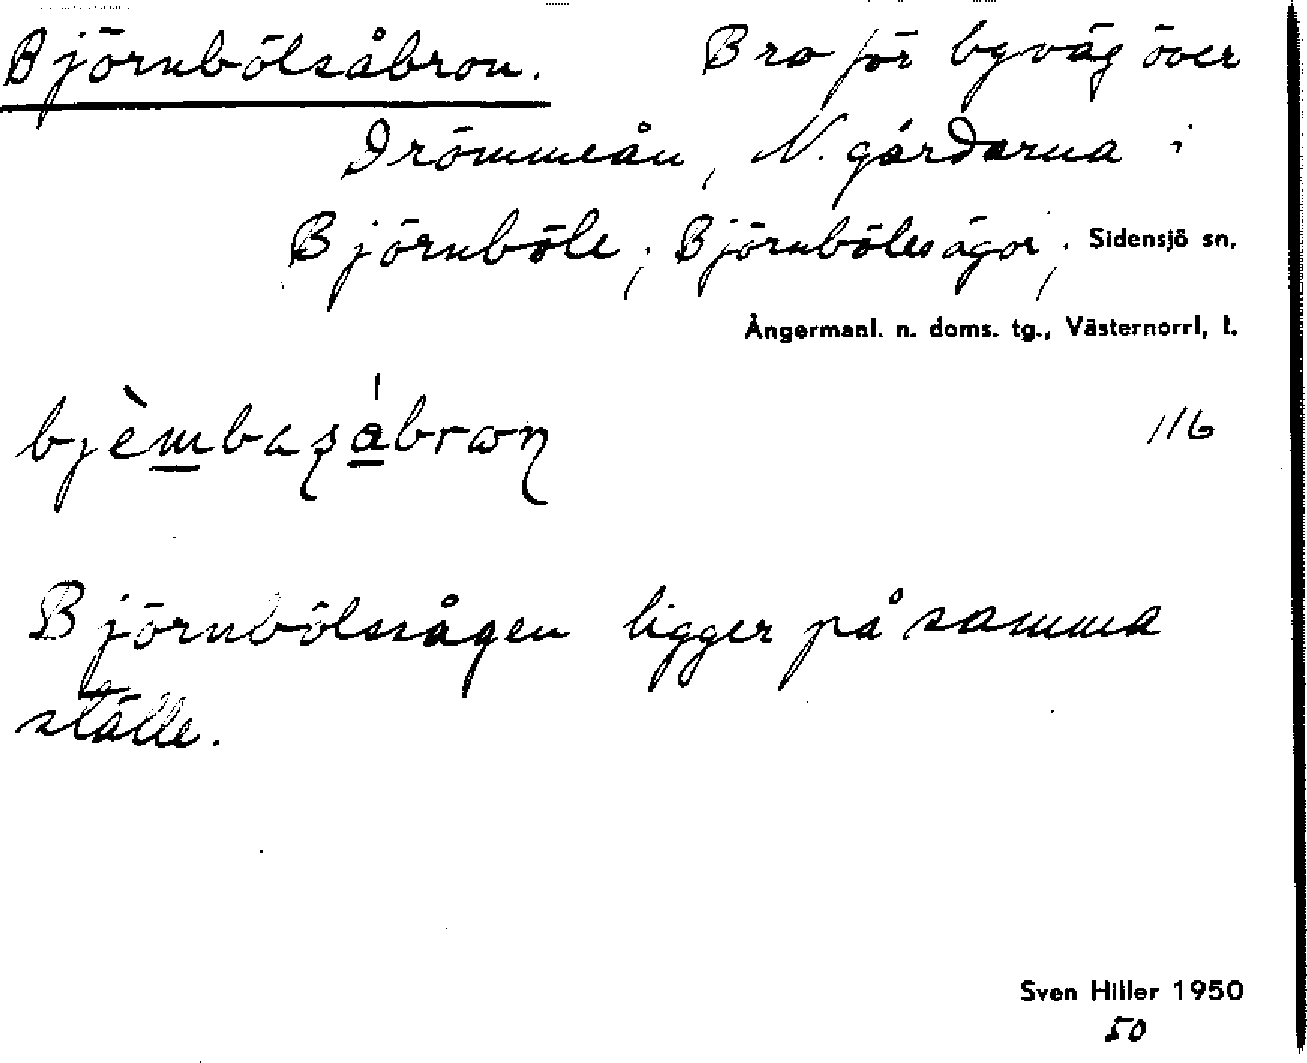 Björnbölsåbron. Bro för byväg över
Drömmeån, N. gårdarna i
Björnböle; Björnböles ägor; Sidensjö sn.
Ångermanl. n. doms. tg., Västernorrl. l.
116
Björnbölssågen ligger på samma
ställe.
Sven Hiller 1950
50